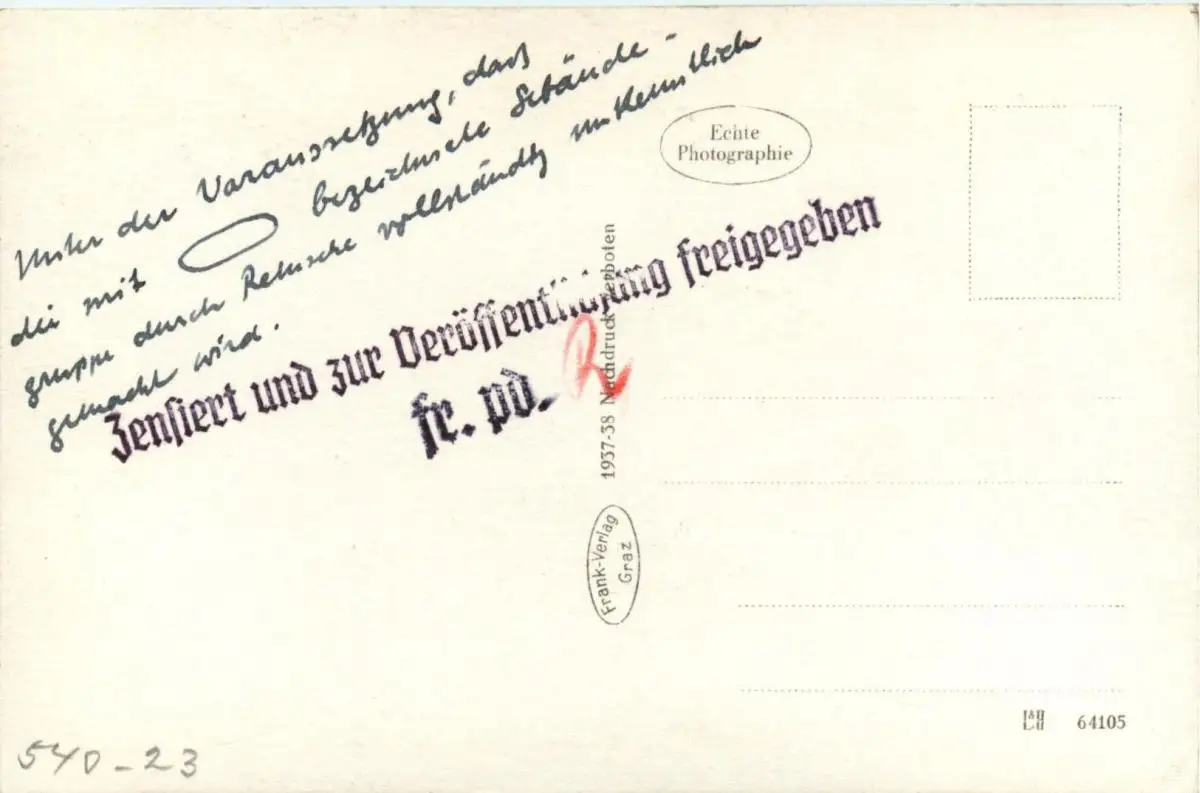 Unter der Voraussetzung, daß
die mit bezeichnete Gebäude-
gruppe durch Retusche vollständig unkenntlich
gemacht wird.
Zensiert und zur Veröffentlichung freigegeben
fr. pd.
Echte
Photographie
1937-38 Nachdruck verboten
Frank-Verlag
Graz
64105
540-23